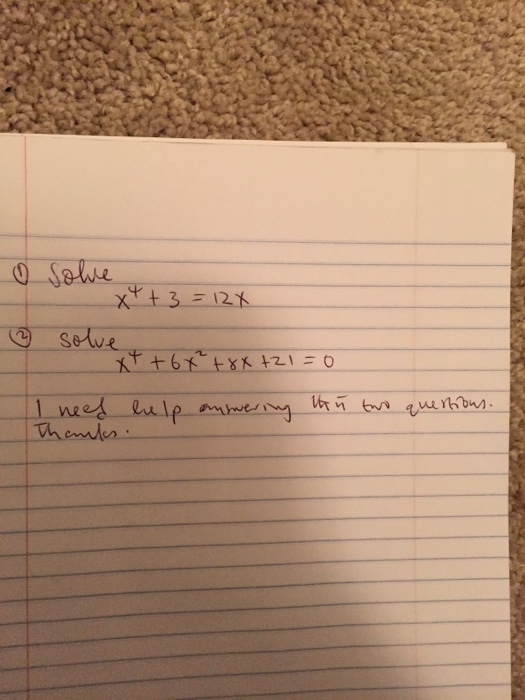 ① Solve
x⁴ + 3 = 12x
② solve
x⁴ + 6x² + 8x + 21 = 0
I need help answering two questions.
Thanks.